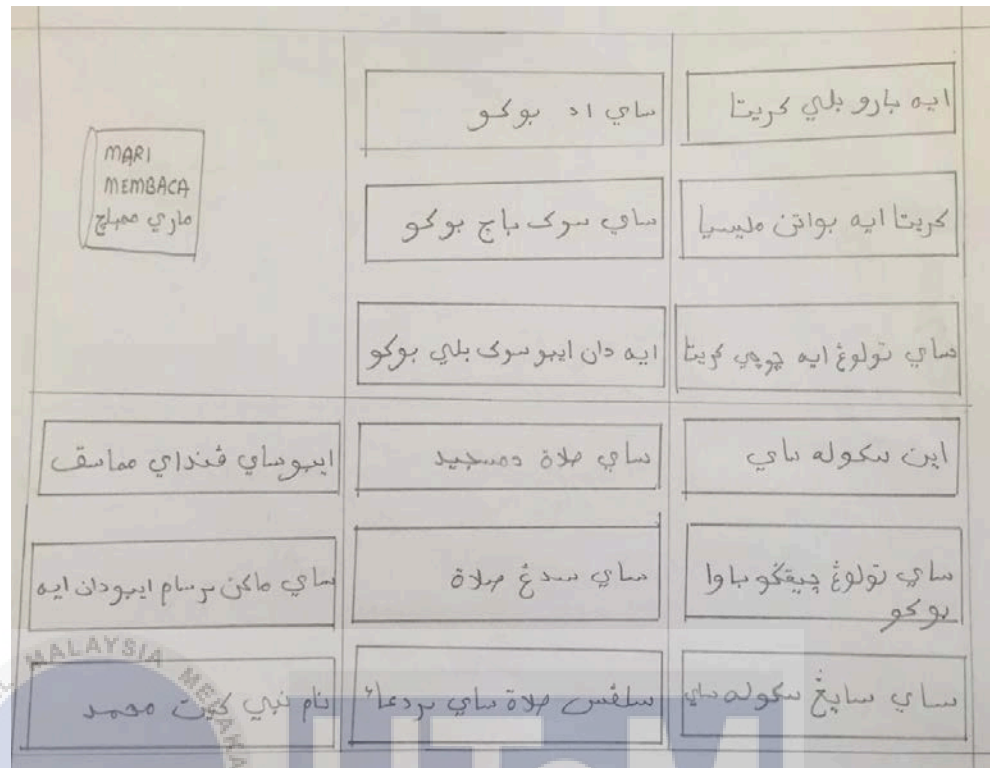 MARI
MEMBACA
ماري ممباچ
ايه بارو بلي كريتا
كريتا ايه بواتن مليسيا
ساي تولوڠ ايه چوچي كريتا
ساي اد بوكو
ساي سوک باچ بوكو
ايه دان ايبو سوک بلي بوكو
اين سكوله ساي
ساي تولوڠ چيقݢو باوا
بوكو
ساي سايڠ سكوله ساي
ساي صلاة دمسجيد
ساي سدڠ صلاة
سلڤس صلاة ساي بردعاء
ايبو ساي ڤنداي مماسق
ساي ماكن برسام ايبو دان ايه
نام نبي كيت محمد
MALAYSIA
UTeM